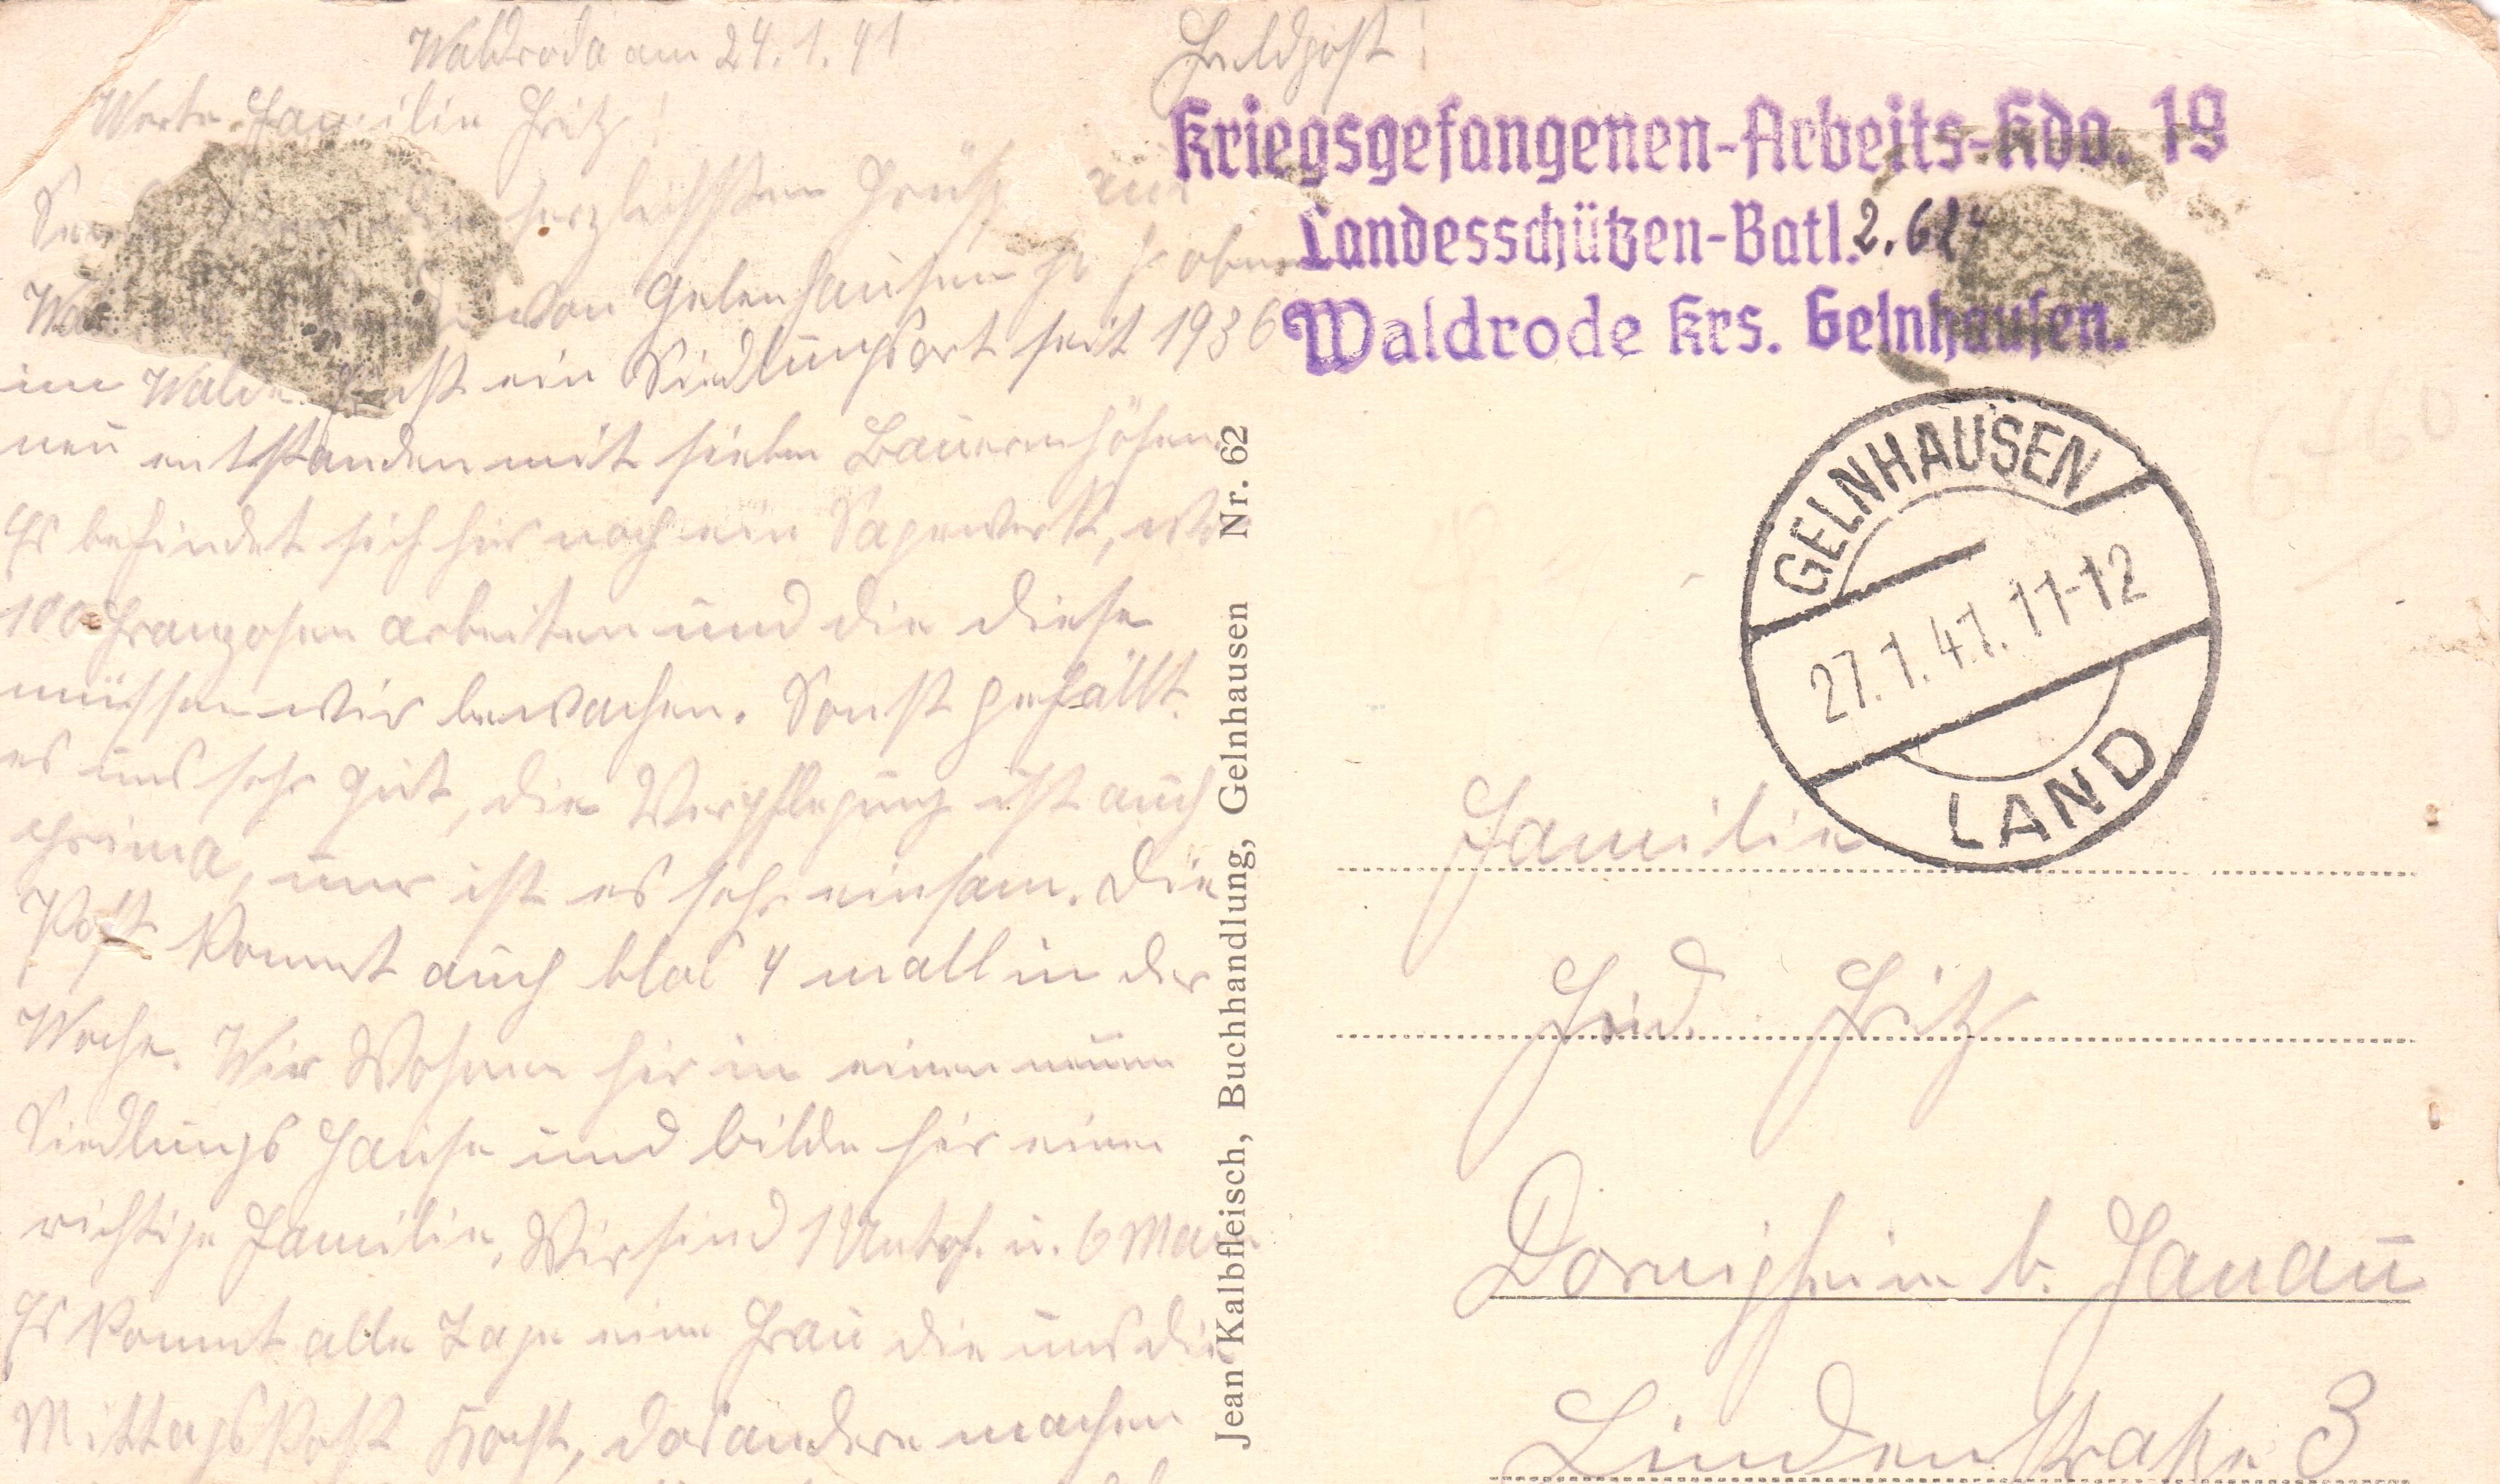 Waldroda am 24.1.41
Werte Familie Fritz!
herzlichsten Grüße aus
von Gelenhausen
im Walde. Es ist ein Siedlungsort seit 1936
neu entstanden mit sieben Bauernhöfen
Es befindet sich hir noch ein Sägewerk, wo
100 Franzosen arbeiten und die diese
müssen wir bewachen. Sonst gefällt
es uns sehr gut, die Verpflegung ist auch
Prima, nur ist es sehr einsam. Die
Post kommt auch blos 4 mall in der
Woche. Wir Wohnen hir in einen neuen
Siedlungs Hause und bilden hir einen
richtige Familie. Wir sind 1 Untof. u. 6 Man
Es kommt alle Tage eine Frau die uns die
Mittagskost kocht, das andere machen
Feldpost!
Kriegsgefangenen-Arbeits-Kdo. 19
Landesschützen-Batl. 2.624
Waldrode Krs. Gelnhausen.
GELNHAUSEN
27.1.41.11-12
LAND
Familie
Frid. Fritz
Dörnigheim b. Hanau
Lindenstraße 3
Jean Kalbfleisch, Buchhandlung, Gelnhausen Nr. 62